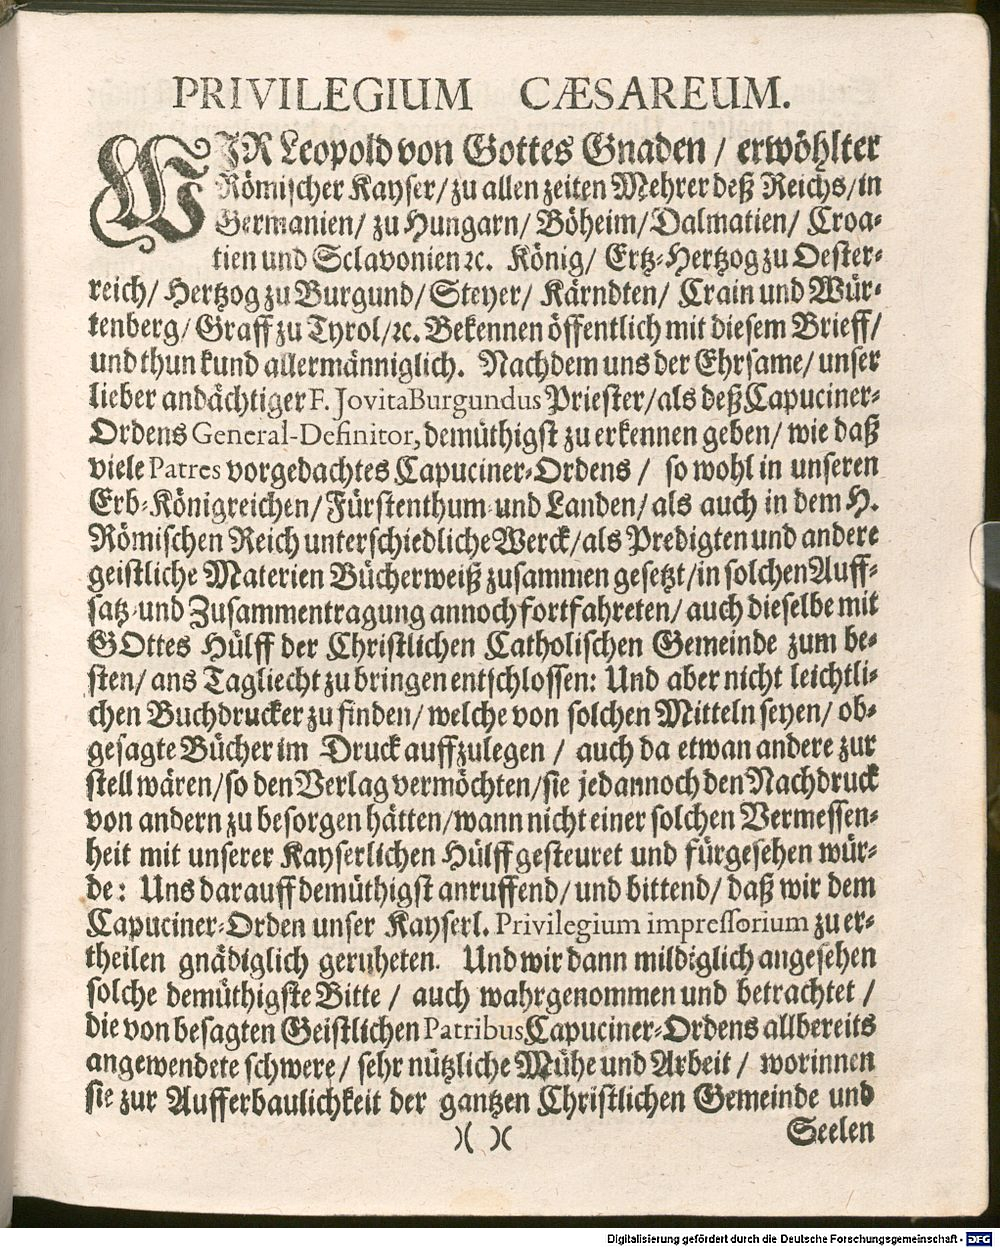 PRIVILEGIUM CÆSAREUM.
WIR Leopold von Gottes Gnaden / erwöhlter
Römischer Kayser/ zu allen zeiten Mehrer deß Reichs/ in
Germanien/ zu Hungarn/ Böheim/ Dalmatien/ Croa-
tien und Sclavonien ꝛc. König/ Ertz-Hertzog zu Oester-
reich/ Hertzog zu Burgund/ Steyer/ Kärndten/ Crain und Wür-
tenberg/ Graff zu Tyrol/ ꝛc. Bekennen öffentlich mit diesem Brieff/
und thun kund allermänniglich. Nachdem uns der Ehrsame/ unser
lieber andächtiger F. Jovita Burgundus Priester/ als deß Capuciner-
Ordens General-Definitor, demüthigst zu erkennen geben/ wie daß
viele Patres vorgedachtes Capuciner-Ordens / so wohl in unseren
Erb-Königreichen/ Fürstenthum- und Landen/ als auch in dem H.
Römischen Reich unterschiedliche Werck/ als Predigten und andere
geistliche Materien Bücherweiß zusammen gesetzt/ in solchen Auff-
satz- und Zusammentragung annoch fortfahreten/ auch dieselbe mit
GOttes Hülff der Christlichen Catholischen Gemeinde zum be-
sten/ ans Tagliecht zu bringen entschlossen: Und aber nicht leichtli-
chen Buchdrucker zu finden/ welche von solchen Mitteln seyen/ ob-
gesagte Bücher im Druck auffzulegen / auch da etwan andere zur
stell wären/ so den Verlag vermöchten/ sie jedannoch den Nachdruck
von andern zu besorgen hätten/ wann nicht einer solchen Vermessen-
heit mit unserer Kayserlichen Hülff gesteuret und fürgesehen wür-
de: Uns darauff demüthigst anruffend/ und bittend/ daß wir dem
Capuciner-Orden unser Kayserl. Privilegium impressorium zu er-
theilen gnädiglich geruheten. Und wir dann mildiglich angesehen
solche demüthigste Bitte / auch wahrgenommen und betrachtet /
die von besagten Geistlichen Patribus Capuciner-Ordens allbereits
angewendete schwere / sehr nützliche Mühe und Arbeit / worinnen
sie zur Aufferbaulichkeit der gantzen Christlichen Gemeinde und
)( )(
Seelen
Digitalisierung gefördert durch die Deutsche Forschungsgemeinschaft - DFG